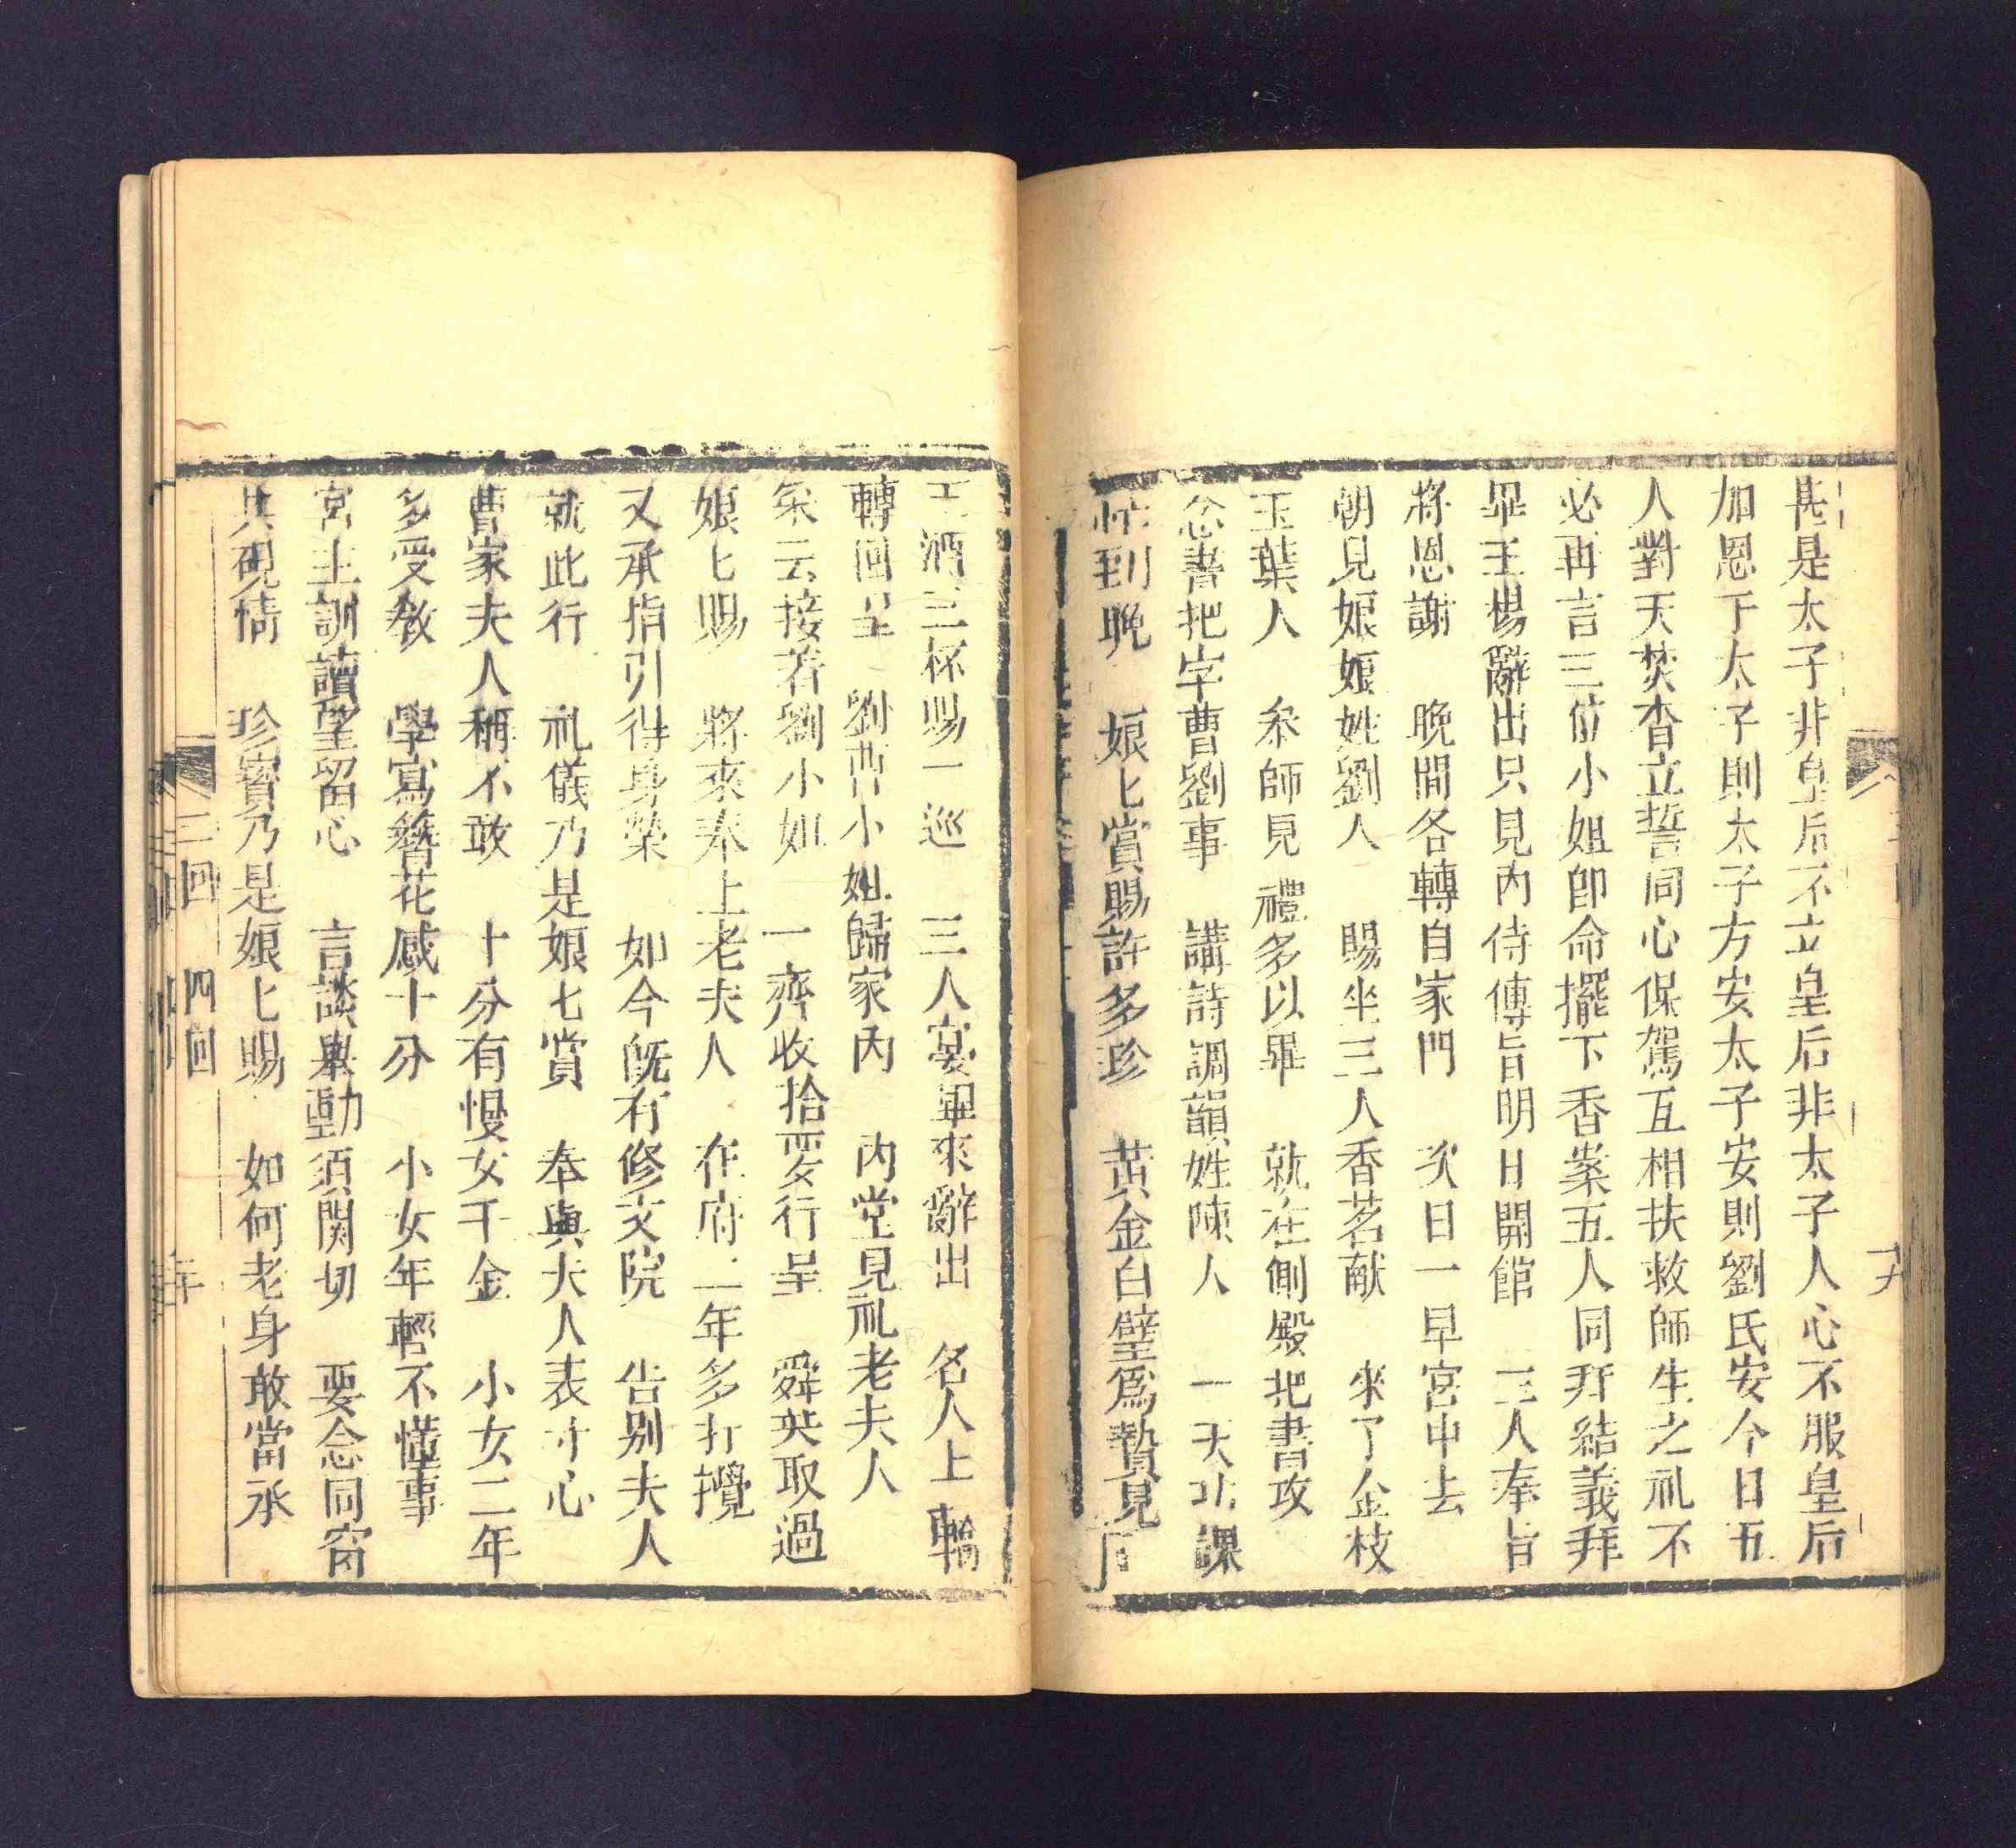 甚是太子非皇后不立皇后非太子人心不服皇后
加恩于太子則太子方安太子安則劉氏安今日五
人對天焚香立誓同心保駕互相扶救師生之礼不
必再言三位小姐卽命擺下香案五人同拜結義拜
畢王楊辭出只見內侍傳旨明日開館　三人奉旨
將恩謝　晚間各轉自家門　次日一早宮中去
朝見娘娘姓劉人　賜坐三人香茗献　來了金枝
玉葉人　釆師見禮多以畢　就在側殿把書攻
念書把字曹劉事　講詩調韻姓陳人　一天功課
忙到晚　娘匕賞賜許多珍　黃金白璧爲贄見
酒三杯賜一巡　三人宴畢來辭出　名人上轎
轉回　劉曹小姐歸家內　內堂見礼老夫人
釆云接着劉小姐　一齊收拾要行呈　舜英取過
娘匕賜　將來奉上老夫人　在府二年多打攪
又承指引得身榮　如今旣有修文院　告别夫人
就此行　礼儀乃是娘匕賞　奉與夫人表寸心
曹家夫人稱不敢　十分有慢女千金　小女二年
多受教　學寫簪花感十分　小女年輕不懂事
宮主訓讀望留心　言談舉動須関切　要念同窗
共硯情　珍寳乃是娘匕賜　如何老身敢當承
三回　四回